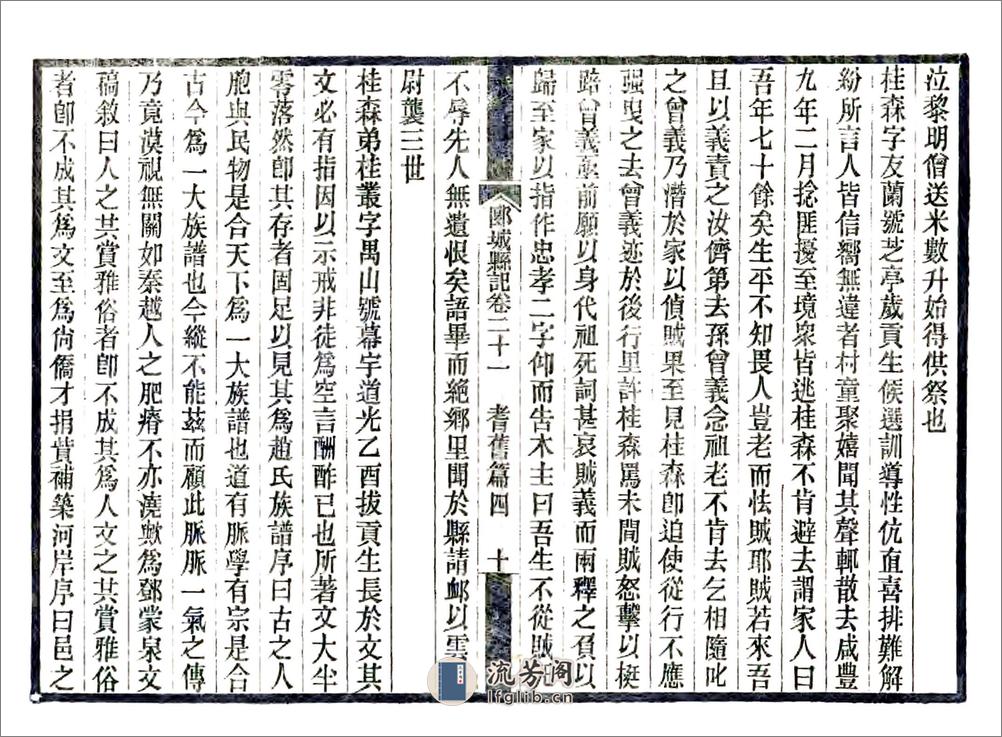 泣黎明僧送米數升始得供祭也
桂森字友蘭號芝亭歲貢生候選訓導性伉直喜排難解
紛所言人皆信嚮無違者村童聚嬉聞其聲輒散去咸豐
九年二月捻匪擾至境衆皆逃桂森不肯避去謂家人曰
吾年七十餘矣生平不知畏人豈老而怯賊耶賊若來吾
且以義責之汝儕第去孫曾義念祖老不肯去乞相隨叱
之曾義乃潛於家以偵賊果至見桂森卽迫使從行不應
强曳之去曾義迹於後行里許桂森罵未間賊怒擊以梃
踣曾義前願以身代祖死詞甚哀賊義而兩釋之負以
歸至家以指作忠孝二字仰而告木主曰吾生不從賊
郾城縣記卷二十一 耆舊篇四 十
不辱先人無遺恨矣語畢而絕鄉里聞於縣請䘏以雲
尉襲三世
桂森弟桂叢字禺山號幕宇道光乙酉拔貢生長於文其
文必有指因以示戒非徒爲空言酬酢已也所著文大半
零落然卽其存者固足以見其爲趙氏族譜序曰古之人
胞與民物是合天下爲一大族譜也道有脈學有宗是合
古今爲一大族譜也今縱不能茲而顧此脈脈一氣之傳
乃竟漠視無關如秦越人之肥瘠不亦澆歟爲鄧蒙泉文
稿敘曰人之共賞雅俗者卽不成其爲人文之共賞雅俗
者卽不成其爲文至爲尙僑才捐貲補築河岸序曰邑之
流芳阁
lfglib.cn